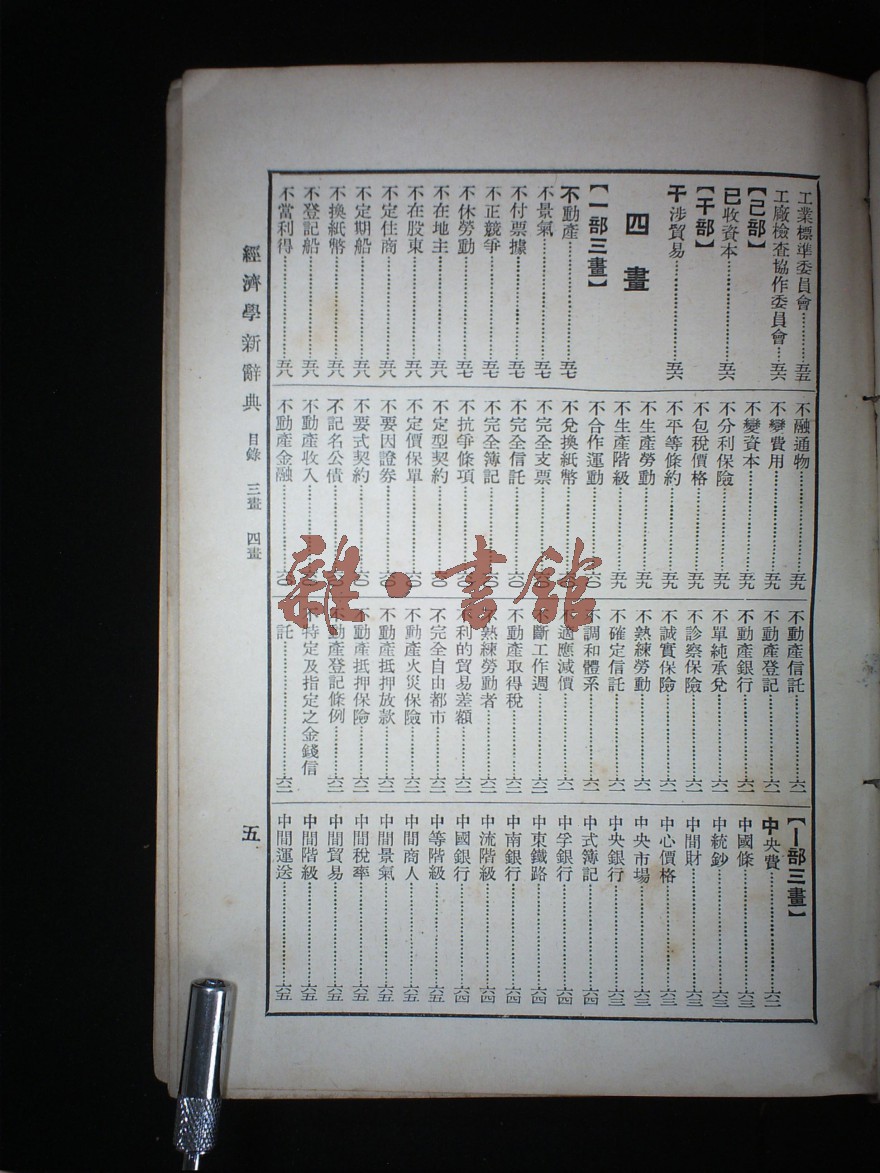 工業標準委員會……五五
工廠檢查協作委員會……五六
【己部】
已收資本……五六
【干部】
干涉貿易……五六
四畫
【一部三畫】
不動產……五七
不景氣……五七
不付票據……五七
不正競爭……五七
不休勞動……五七
不在地主……五八
不在股東……五八
不定住商……五八
不定期船……五八
不換紙幣……五八
不登記船……五八
不當利得……五八
不融通物……五九
不變費用……五九
不變資本……五九
不分利保險……五九
不包稅價格……五九
不平等條約……五九
不生產勞動……五九
不生產階級……五九
不合作運動……六〇
不兌換紙幣……六〇
不完全支票……六〇
不完全信託……六〇
不完全簿記……六〇
不抗爭條項……六〇
不定型契約……六〇
不定價保單……六〇
不要因證券……六〇
不要式契約……六〇
不記名公債……六〇
不動產收入……六〇
不動產金融……六〇
不動產信託……六一
不動產登記……六一
不動產銀行……六一
不單純承兌……六一
不診察保險……六一
不誠實保險……六一
不熟練勞動……六一
不確定信託……六一
不調和體系……六一
不適應減價……六一
不斷工作週……六二
不動產取得稅……六二
不熟練勞動者……六二
不利的貿易差額……六二
不完全自由都市……六二
不動產火災保險……六二
不動產抵押放款……六二
不動產抵押保險……六二
不動產登記條例……六二
不特定及指定之金錢信
託……六二
【丨部三畫】
中央費……六二
中國條……六三
中統鈔……六三
中間財……六三
中心價格……六三
中央市場……六三
中央銀行……六三
中式簿記……六四
中孚銀行……六四
中東鐵路……六四
中南銀行……六四
中流階級……六四
中國銀行……六四
中等階級……六五
中間商人……六五
中間景氣……六五
中間稅率……六五
中間貿易……六五
中間階級……六五
中間運送……六五
經濟學新辭典 目錄 三畫 四畫
五
雜·書館